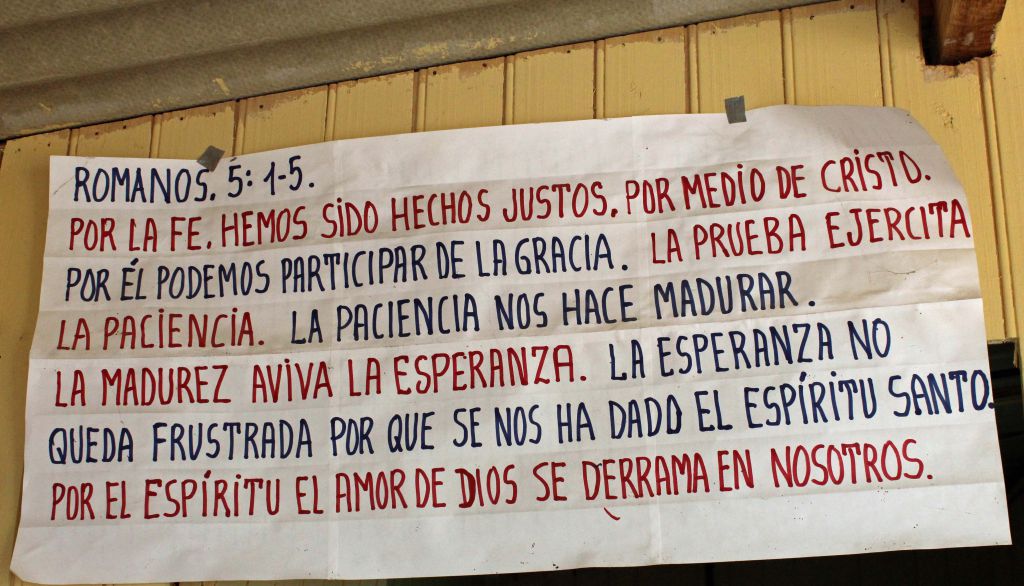 ROMANOS. 5: 1-5.
POR LA FE. HEMOS SIDO HECHOS JUSTOS. POR MEDIO DE CRISTO.
POR ÉL PODEMOS PARTICIPAR DE LA GRACIA. LA PRUEBA EJERCITA
LA PACIENCIA. LA PACIENCIA NOS HACE MADURAR.
LA MADUREZ AVIVA LA ESPERANZA. LA ESPERANZA NO
QUEDA FRUSTRADA POR QUE SE NOS HA DADO EL ESPÍRITU SANTO.
POR EL ESPÍRITU EL AMOR DE DIOS SE DERRAMA EN NOSOTROS.